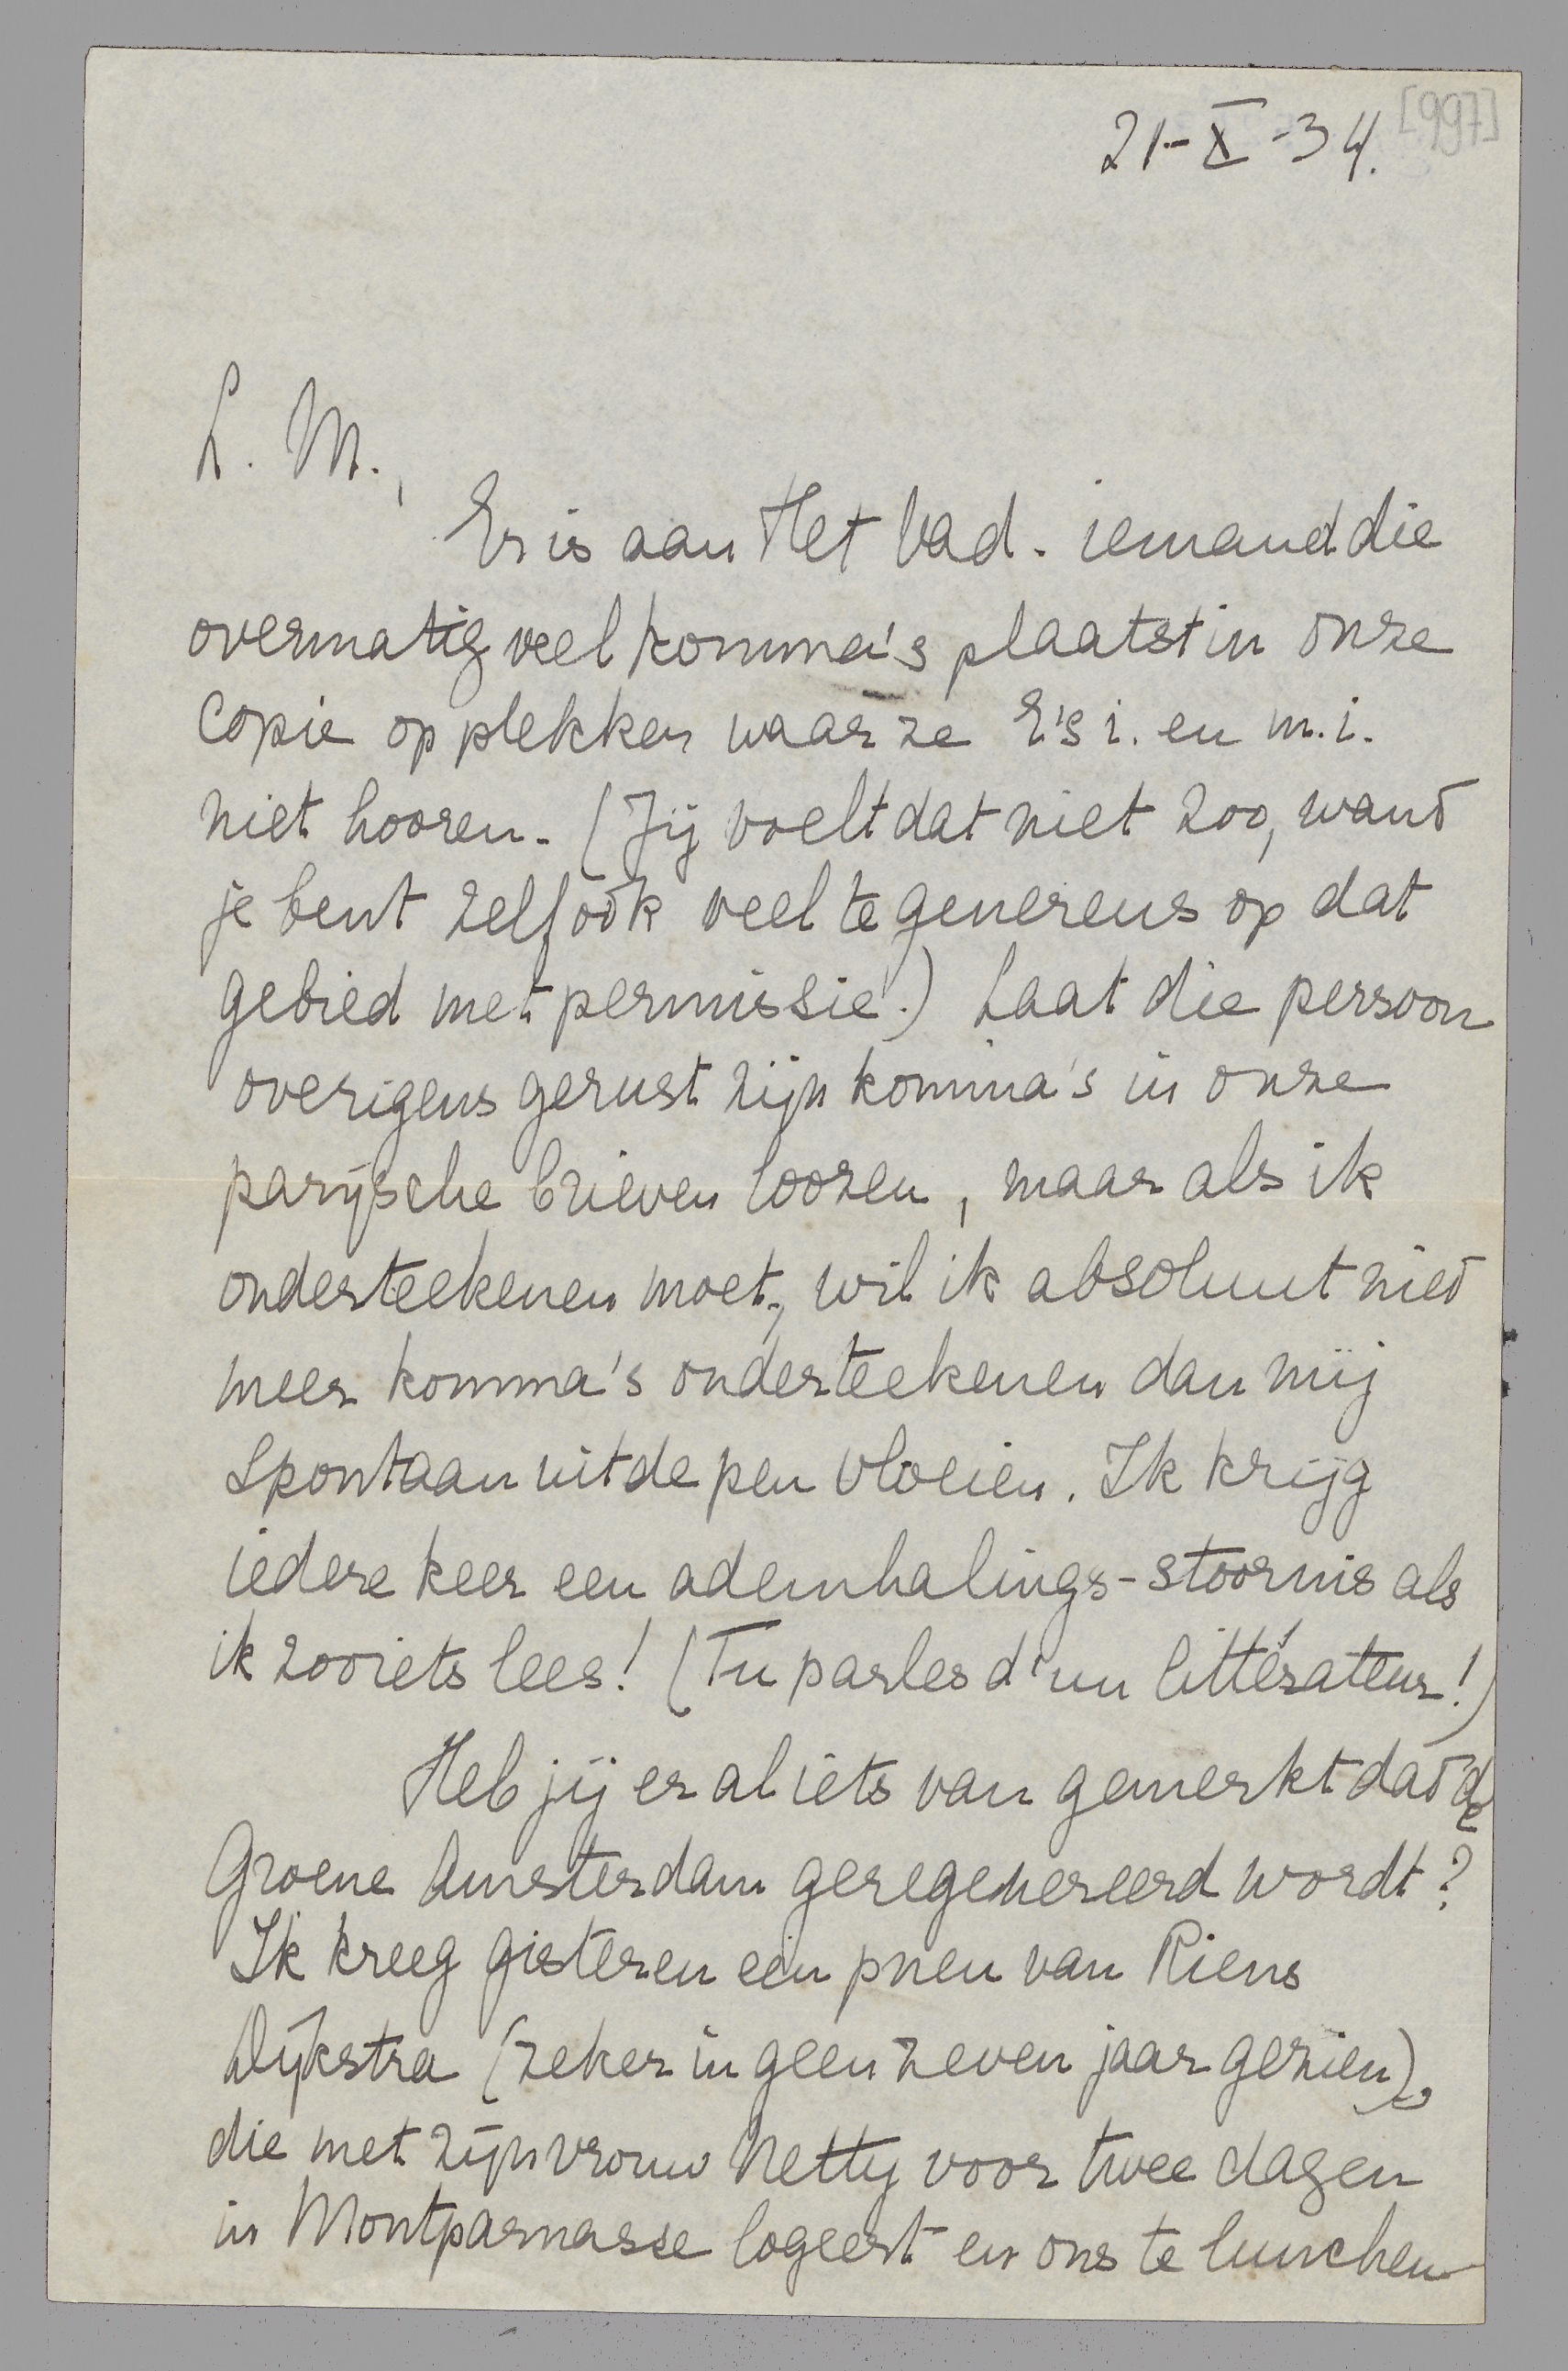 [997]
21-X-34.
L. M.,
Er is aan Het Vad. iemand die
overmatig veel komma's plaatst in onze
copie op plekken waar ze E's i. en m.i.
niet hooren. (Jij voelt dat niet zoo, want
je bent zelf ook veel te genereus op dat
gebied met permissie.) Laat die persoon
overigens gerust zijn komma's in onze
parijsche brieven loozen, maar als ik
onderteekenen moet, wil ik absoluut niet
meer komma's onderteekenen dan mij
spontaan uit de pen vloeien. Ik krijg
iedere keer een ademhalings-stoornis als
ik zooiets lees! (Tu parles d'un littérateur!)
Heb jij er al iets van gemerkt dat de
Groene Amsterdam geregenereerd wordt?
Ik kreeg gisteren een pneu van Riens
Dijkstra (zeker in geen zeven jaar gezien),
die met zijn vrouw Netty voor twee dagen
in Montparnasse logeert en ons te lunchen